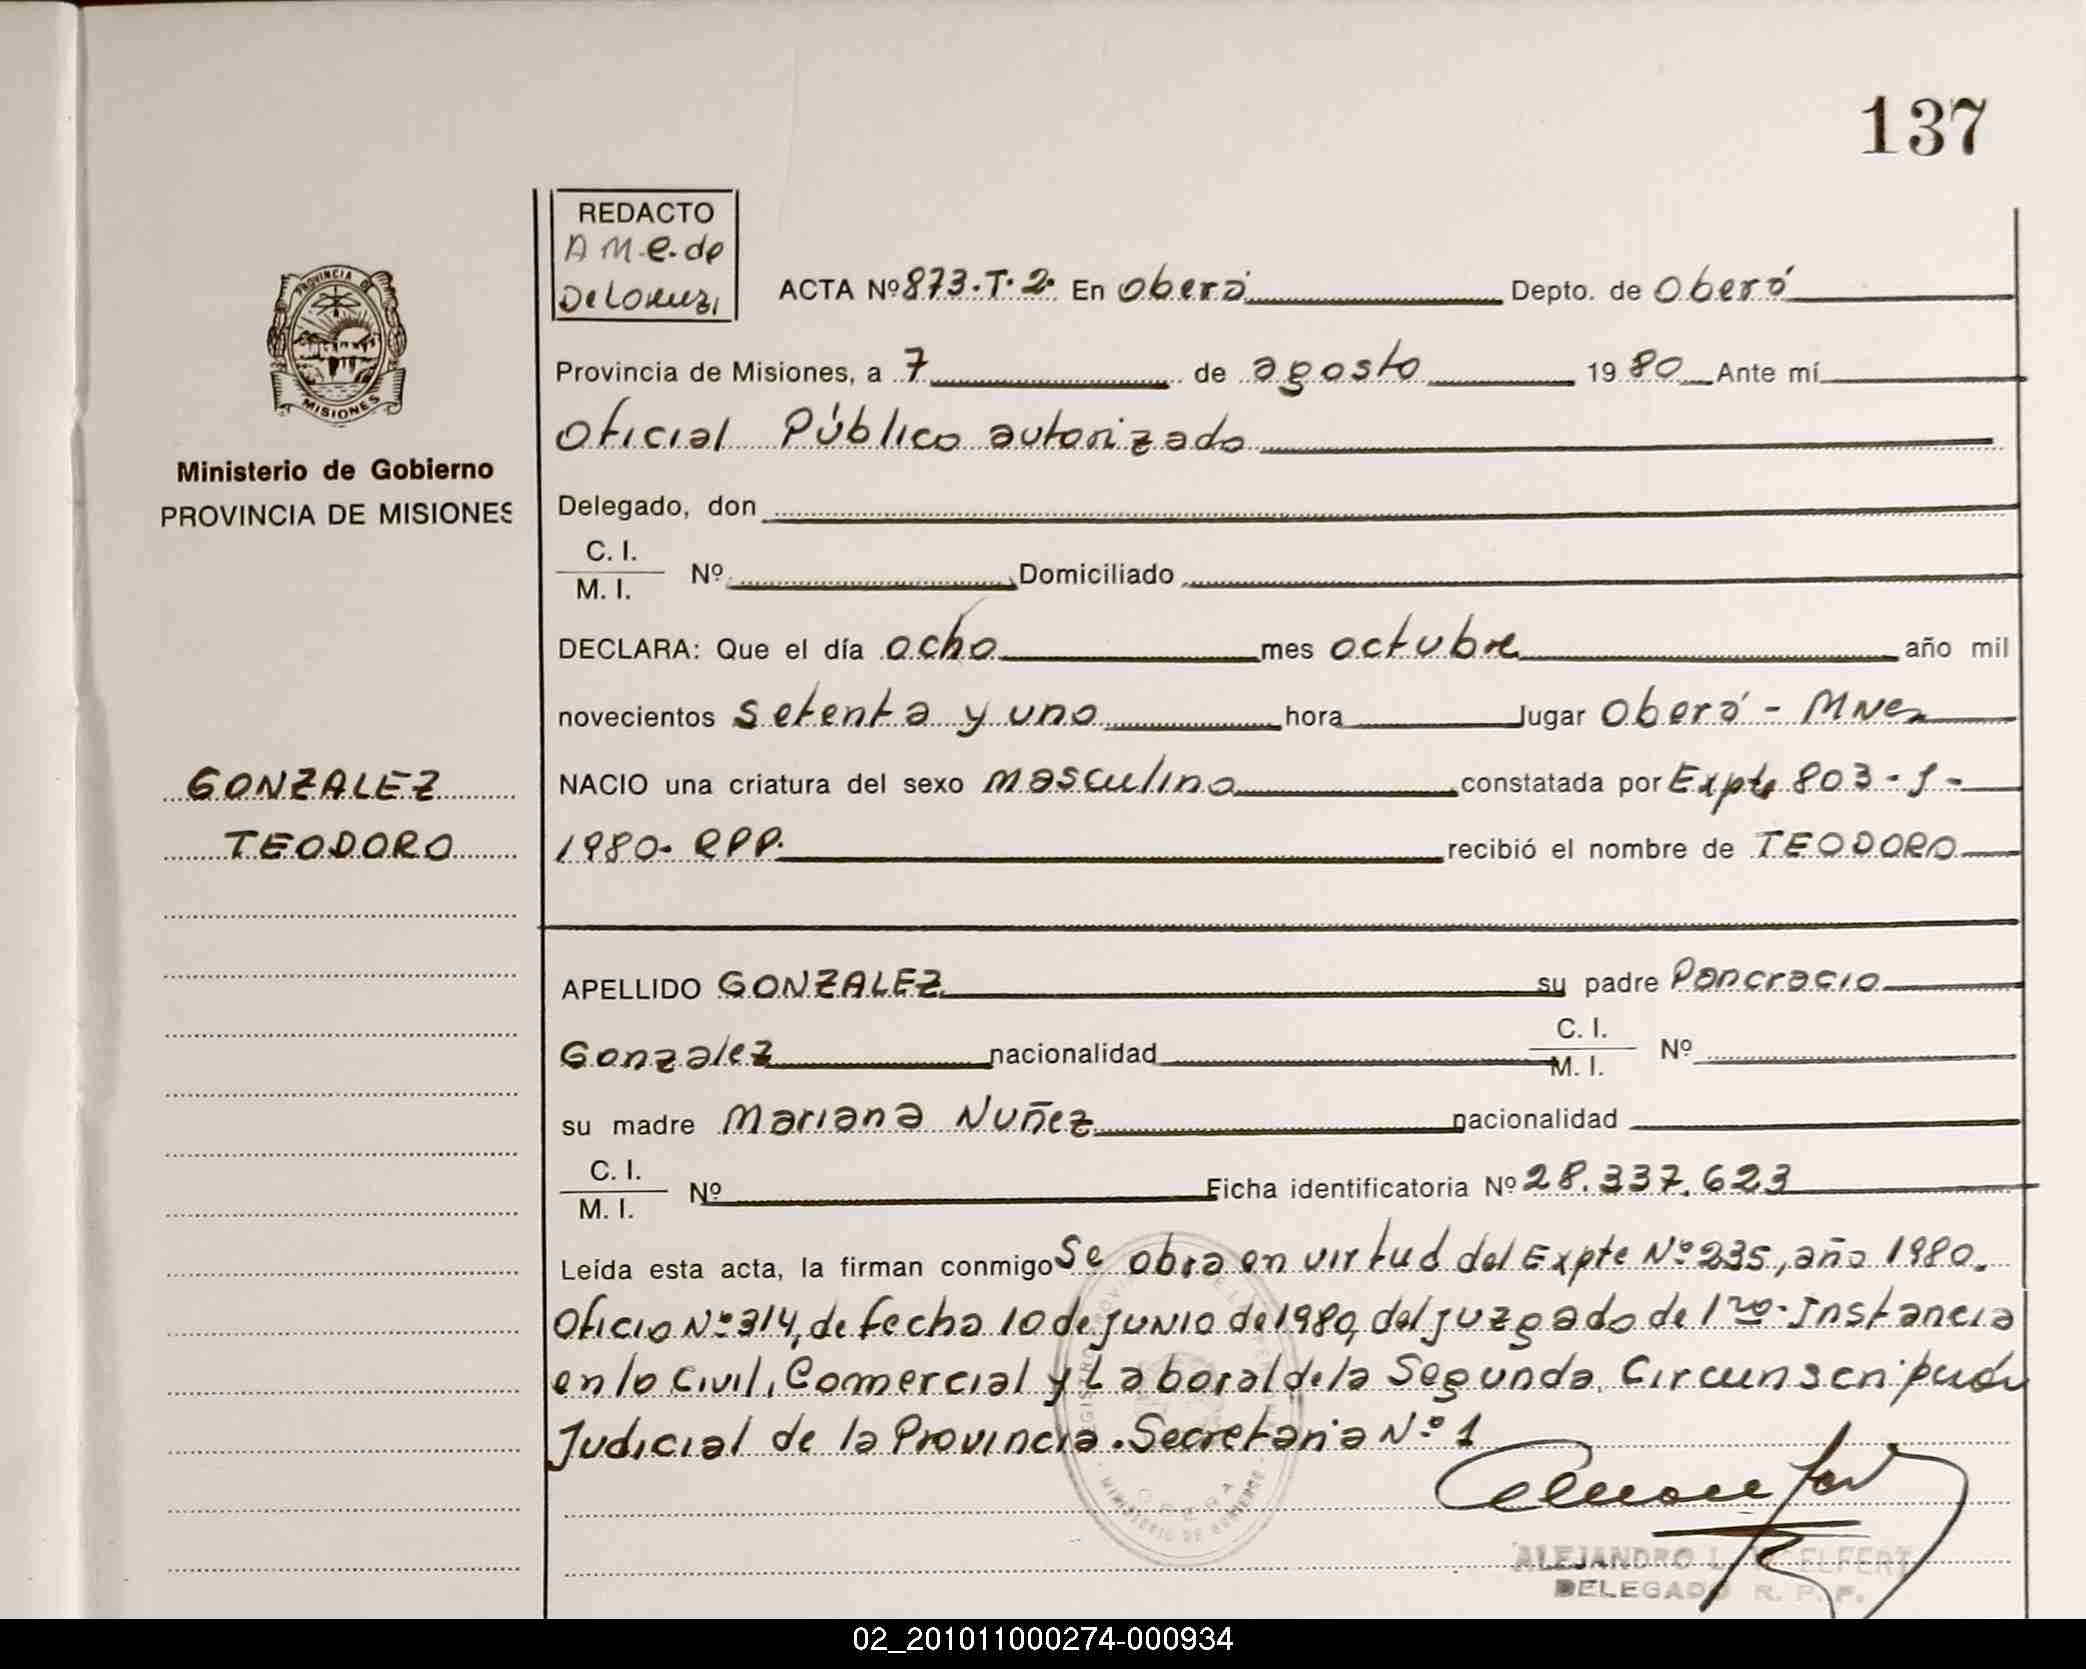 137
REDACTO
A M e. de
De Lorenzi
PROVINCIA DE
MISIONES
Ministerio de Gobierno
PROVINCIA DE MISIONES
ACTA Nº 873.T.2. En Oberá Depto. de Oberá
Provincia de Misiones, a 7 de agosto 1980 Ante mí
Oficial Público autorizado
Delegado, don
C. I.
M. I. Nº Domiciliado
DECLARA: Que el día ocho mes octubre año mil
novecientos setenta y uno hora lugar Oberá - Mnes
GONZALEZ
TEODORO
NACIO una criatura del sexo masculino constatada por Expte 803 - J -
1980- RPP. recibió el nombre de TEODORO
APELLIDO GONZALEZ su padre Pancracio
Gonzalez nacionalidad C. I. M. I. Nº
su madre Mariana Nuñez nacionalidad
C. I.
M. I. Nº Ficha identificatoria Nº 28.337.623
Leída esta acta, la firman conmigo Se obra en virtud del Expte Nº 235, año 1980.
Oficio Nº 314, de fecha 10 de junio de 1980, del juzgado de 1ro. Instancia
en lo Civil, Comercial y Laboral de la Segunda Circunscripción
Judicial de la Provincia. Secretaria Nº 1
MINISTERIO DE GOBIERNO
ALEJANDRO L. ELFERT
DELEGADO R. P. P.
02_201011000274-000934